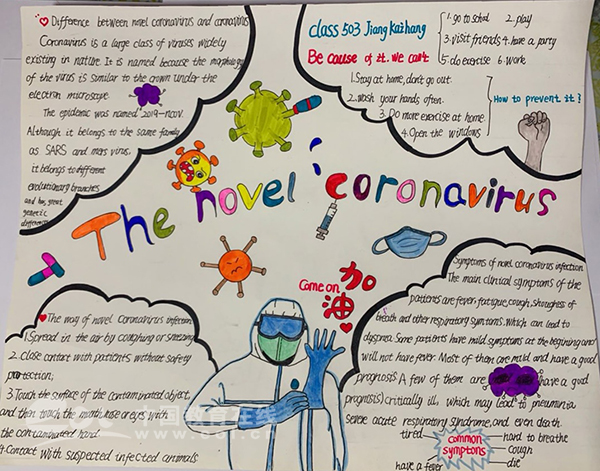 Difference between novel coronavirus and coronavirus
Coronavirus is a large class of viruses widely
existing in nature. It is named because the morphology
of the virus is similar to the crown under the
electron microscope
The epidemic was named 2019-ncov.
Although it belongs to the same family
as SARS and mers virus.
it belongs to different
evolutionary branches
and has great
genetic
differences
class 503 Jiang Kaizhang
Be cause of it. we can't
1. go to school 2. play
3. visit friends 4. have a party
5. do exercise 6. work
1. Stay at home, don't go out.
2. wash your hands often.
3. Do more exercise at home.
4. Open the windows
How to prevent it?
The novel coronavirus
Come on
加
油
The way of novel Coronavirus infection
1. Spread in the air by coughing or sneezing
2. close contact with patients without safety
protection;
3. Touch the surface of the contaminated object,
and then touch the mouth nose or eyes with
the contaminated hand
4. Contact with suspected infected animals
Symptoms of novel coronavirus infection
The main clinical symptoms of the
patients are fever, fatigue, cough, shoughess of
breath and other respiratory symtoms. which can lead to
dyspnea. Some patients have mild symptoms at the beginning and
will not have fever. Most of them are mild and have a good
prognosis. A few of them are have a good
prognosis) critically ill, which may lead to pneumina
severe acute respiratory syndrome, and even death
tired
common
symptons
hard to breathe
cough
die
have a fever
中国教育在线